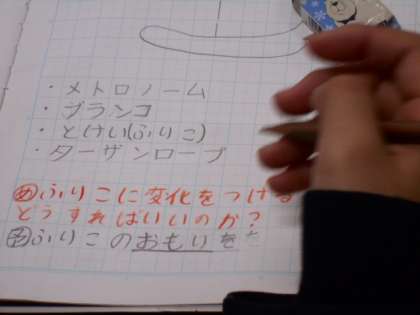 ・メトロノーム
・ブランコ
・とけい(ふりこ)
・ターザンロープ
めふりこに変化をつける
どうすればいいのか?
予ふりこのおもりを